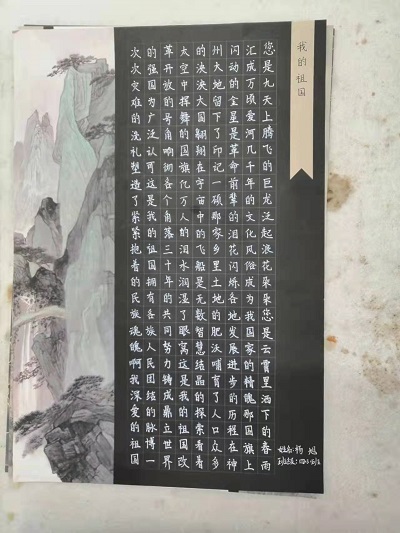 我的祖国
您是九天上腾飞的巨龙泛起浪花朵朵您是云霄里洒下的春雨
汇成万顷爱河几千年的文化风俗成为我国家的精魄那国旗上
闪动的金星是革命前辈的泪花闪烁各地发展进步的历程在神
州大地留下了印记一硕那家乡里土地的肥沃哺育了人口众多
的泱泱大国翱翔在宇宙中的飞船是无数智慧结晶的探索看着
太空中挥舞的国旗亿万人的泪水润湿了眼窝这是我的祖国改
革开放的号角响彻各个角落三十年的共同努力铸成鼎立世界
的强国为广泛认可这是我的祖国拥有各族人民团结的脉博一
次次灾难的洗礼塑造了紧紧抱着的民族魂魄啊我深爱的祖国
姓名:杨旭
班级: